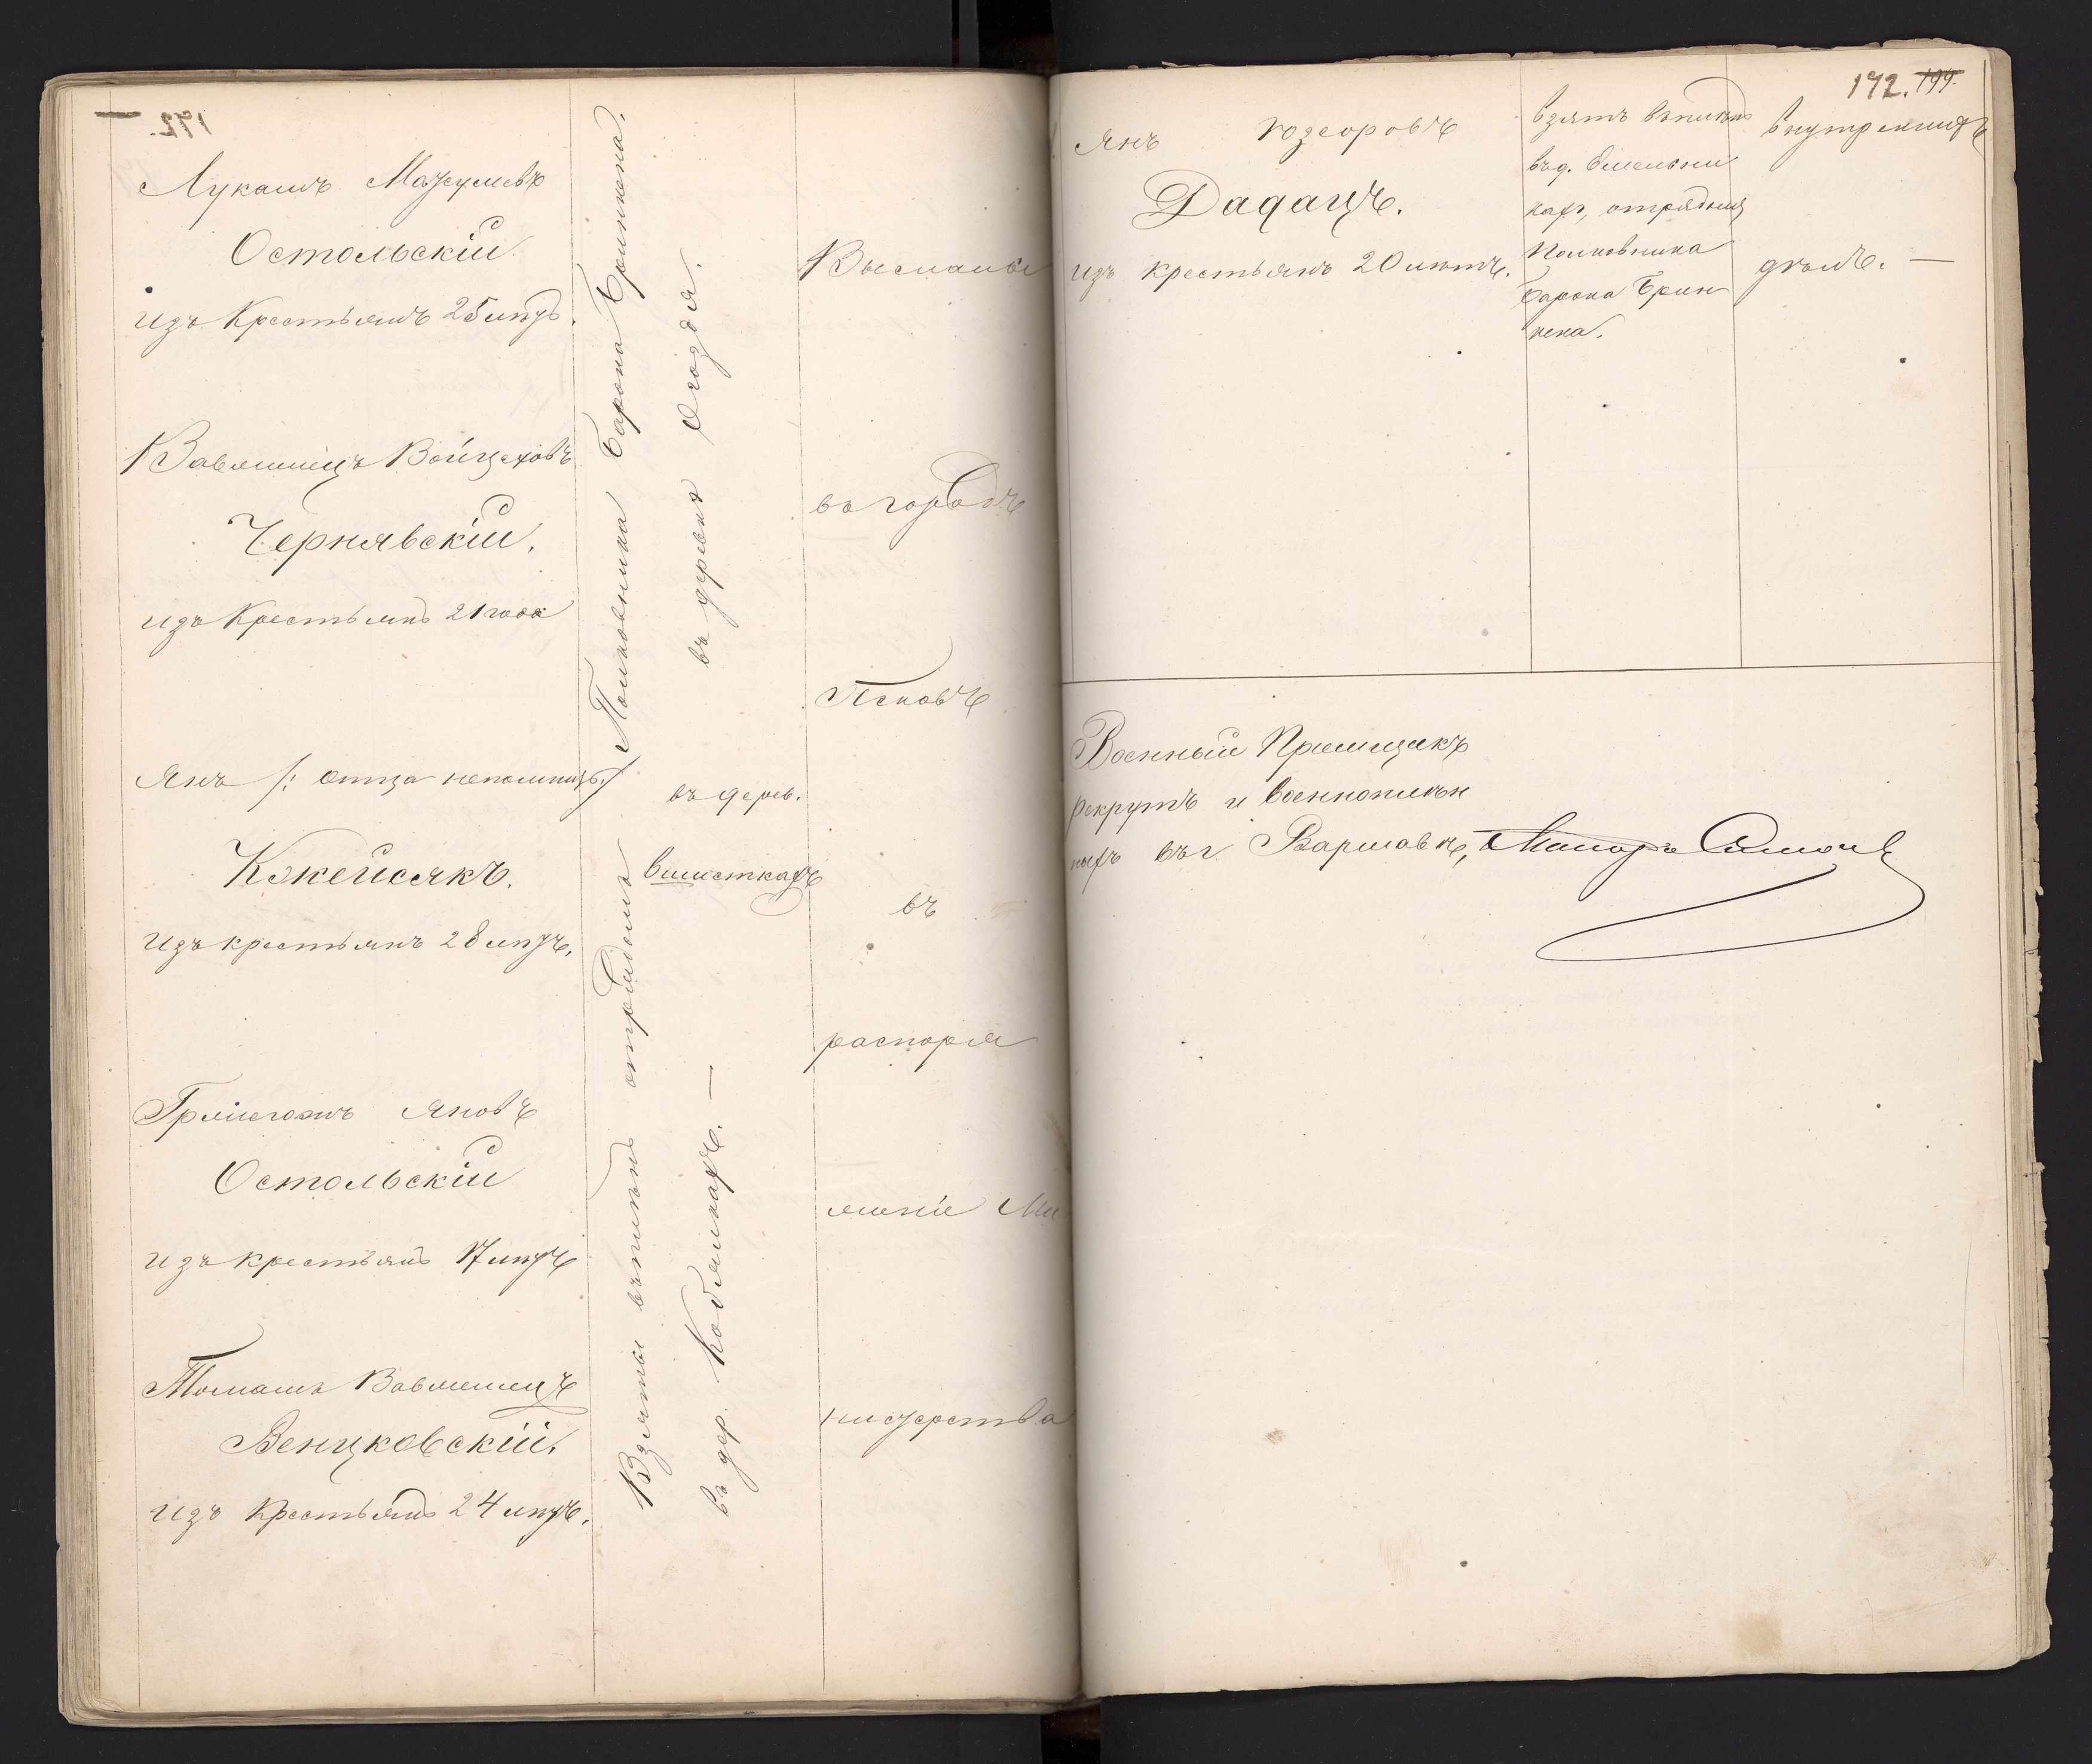 Лукашъ
Остольскій
изъ Крестьянъ 25 лѣтъ.
Вавжинецъ Войцеховъ
Чернявскій.
изъ Крестьянъ 21 года
Янъ /: отца непомнитъ :/
Кэкейсякъ.
изъ крестьянъ 28 лѣтъ.
Яновъ
Остольскій
изъ крестьянъ 17 лѣтъ
Томашъ Вавжинецъ
Венцковскій.
изъ Крестьянъ 24 лѣтъ.
Взяты въ плѣнъ отрядомъ Полковника Барона Бринкена.
въ деревнѣ
въ дер.
въ дерев.
Высланы
въ городъ
Псковъ
въ
распоря
женіе Ми
нистерства
172. 199.
Янъ Юзефовъ
Дадацъ.
изъ крестьянъ 20 лѣтъ.
взятъ въ плѣнъ
въ д.
кахъ, отрядомъ
Полковника
Барона Брин
кена.
внутреннихъ
дѣлъ. —
Военный Пріемщикъ
рекрутъ и военноплѣн
ныхъ въ г. Варшавѣ, Маіоръ